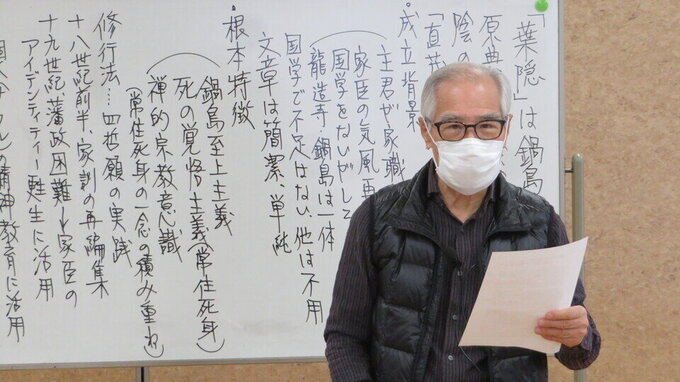 「葉隠」は鍋島
原典
陰の
「直茂
・成立背景
主君が家職
家臣の気風再
国学をないがして
龍造寺・鍋島は一体
国学で不足はない、他は不用
文章は簡潔、単純
・根本特徴
鍋島至上主義
死の覚悟主義(常住死身)
禅的宗教意識
(常住死身の一念の積み重ね)
修行法…四哲願の実践
十八世紀前半、家訓の再編集
十九世紀藩政困難し家臣の
アイデンティティー甦生に活用
の精神教育に活用